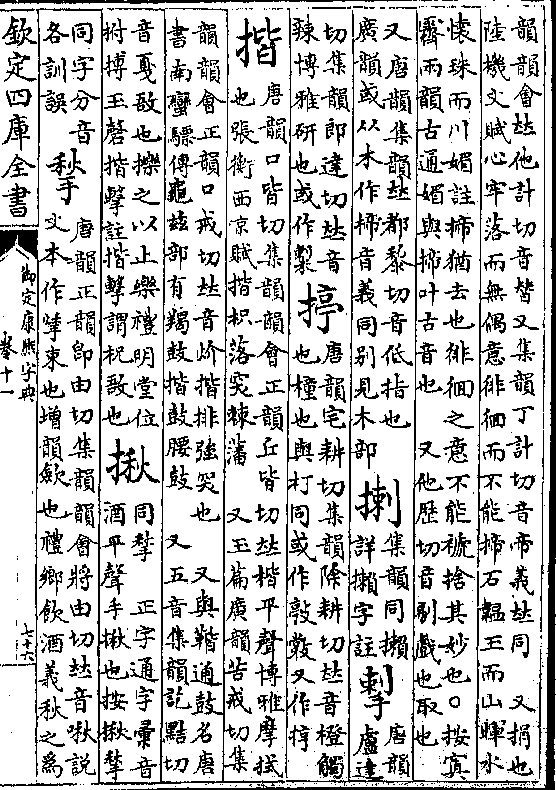 韻韻會𠀤他計切音替又集韻丁計切音帝義𠀤同　又捐也
陸機文賦心牢落而無偶意徘徊而不能揥石韞玉而山輝水
懷珠而川媚註揥猶去也徘徊之意不能褫捨其妙也○按寘
霽兩韻古通媚與揥叶古音也　又他歷切音剔戲也取也
又唐韻集韻𠀤都黎切音低指也
廣韻或从木作㭽音義同别見木部
揦
集韻同攋
詳攋字註
唐韻
盧達
切集韻郎達切𠀤音
辣博雅研也或作
揨
唐韻宅耕切集韻除耕切𠀤音橙觸
也橦也與打同或作敦又作
揩
唐韻口皆切集韻韻會正韻丘皆切𠀤楷平聲博雅摩拭
也張衡西京賦揩枳落突棘藩　又玉篇廣韻苦戒切集
韻韻會正韻口戒切𠀤音烗揩排強突也　又與鞜通鼓名唐
書南蠻驃傳龜兹部有羯鼓揩鼓腰鼓　又五音集韻訖黠切
音戛敔也擽之以止樂禮明堂位
拊搏玉磬揩擊註揩擊謂柷敔也
揪
同揫　正字通字彙音
酒平聲手揪也按揪揫
同字分音
各訓誤
揫
唐韻正韻卽由切集韻韻會將由切𠀤音啾說
文本作束也增韻斂也禮鄉飲酒義秋之爲
欽定四庫全書
御定康熙字典
卷十一
七十六